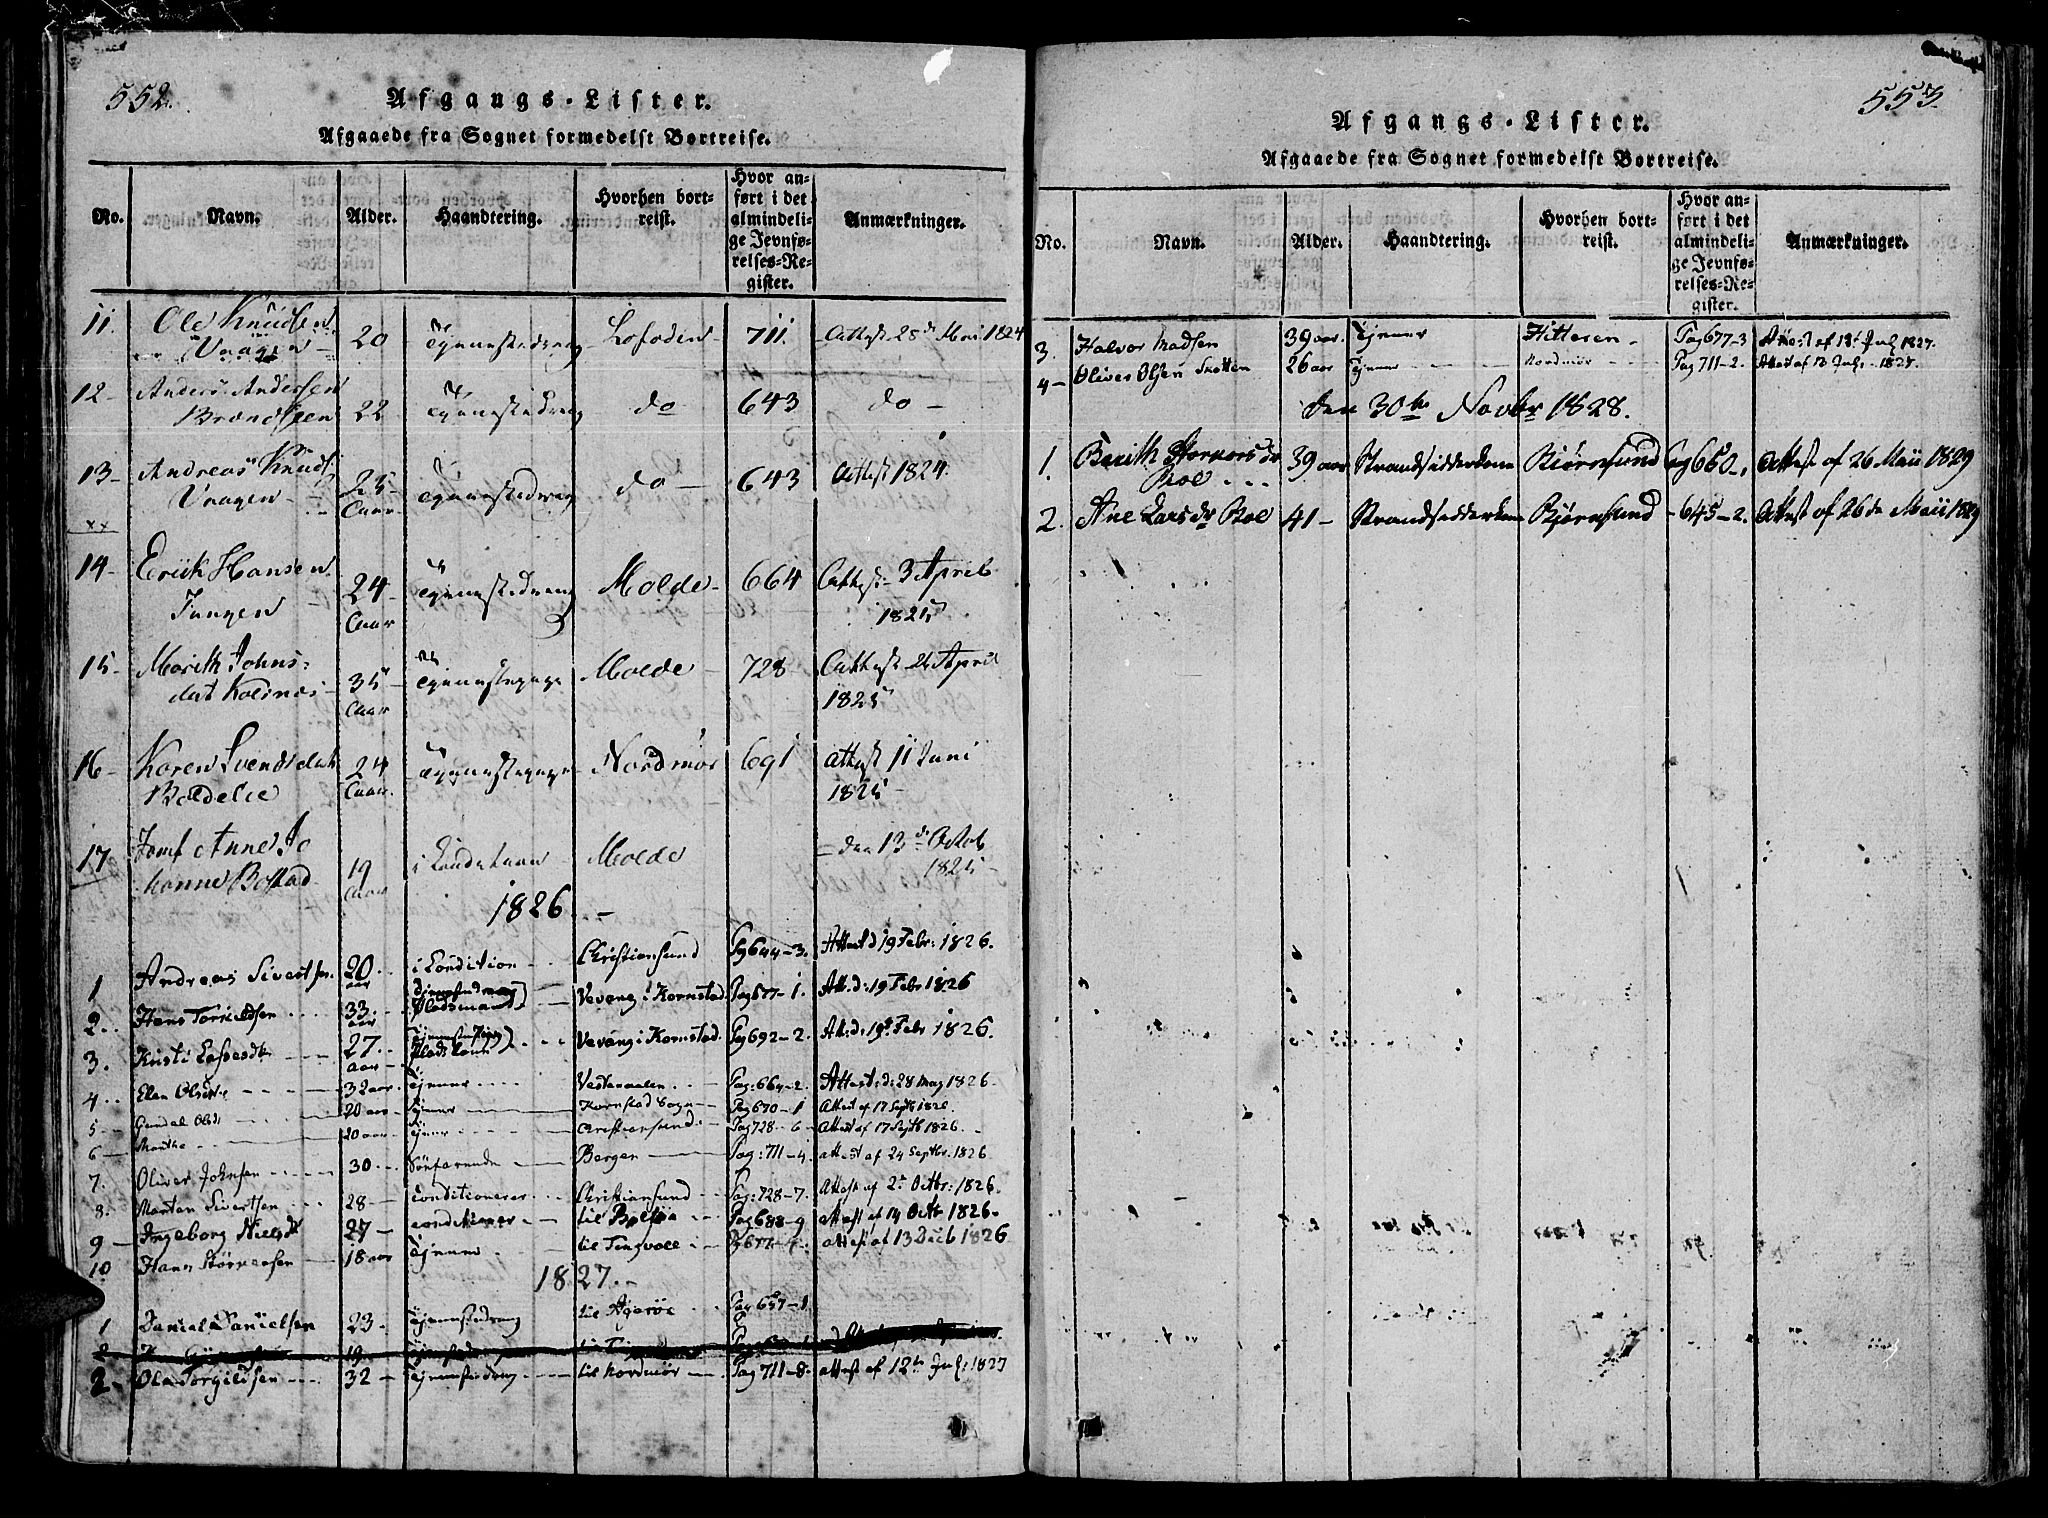 552.
Afgangs-Lister.
Afgaaede fra Sognet formedelst Bortreise.
No. Navn. Alder. Haandtering. Hvorhen bortreist. Hvor anført i det almindelige Jevnførelses-Register. Anmærkninger.
11. Ole Knudsen 20 Tjenestedreng Lofoden 711. Attest 28de Mai 1824
Vaagen
12- Anders Andersen 22 Tjenestedreng do 643 do -
13- Andreas Knuds. 25- Tjenestedreng do - 643 Attest 1824.
Vaagen - Aar
14- Erik Hansen 24- Tjenestedreng Molde- 664 Attest- 3 April
Tangen Aar 1825
15- Marith Johns- 35- Tjenestepige Molde- 728 Attest 24 April
dat Aar 1825
16- Karen Svendsdat 24 Tjenestepige Nordmør 691 attest 11 Juni
Aar. 1825-
17 Jomf Anne Jo 19 Molde - den 13de Octob
hanne Bostad Aar 1825-
1826. -
1 Andreas Sivertsen. 20.. aar i Condition - - Christiansund Pag 644-3. Attest d 19 Febr: 1826.
2.. Hans Torkildsen .... 33. aar Pladsmand) - Vevang i Kornstad Pag 677-1. Att: d: 19 Febr 1826
3. Kirsti Lassesdtr - - - 27.. aar Vevang i Kornstad. Pag 692-2. Att: d: 19de Febr 1826.
4.. Elen Olsdtr - - - 32 aar. Tjener .... Vesteraalen .. - Pag: 664-2. Attest: d: 28 May 1826.
5 - Gundal Olsd 20 aar. Tjener Kornstad Sogn - Pag 670-1 Attest af 17 Septb 1826.
6 - Marthe 20 aar. Tjener Christiansund. Pag 728-6- Attest af 17 Septb 1826.
7. Oliver Johnsen ... 30... Søefarende - Bergen - Pag: 711-4. attest af 24 Septbr. 1826.
8. Morten Sivertsen ... 28 - conditionerer .. Christiansund - - Pag: 728-7. Attest af 2de Octbr: 1826.
9 - Ingeborg Nielsd 27 - conditioner .. - til Bolsøe - - Pag 688-9 attest af 14 Octb 1826.
10 Hans Størkersen - 18 aar Tjener - til Tingvoll - Pg 677-4. attest af 13 Decb 1826
1827. -
1 Daniel Danielsen 23. Tjenestedreng til Agerøe .. Pag 657-1
2- Ole Torgildsen - - - 32 - Tjenestedreng - - - til Nordmør - Pag 711-8. attest af 12te Jul: 1827
553.
Afgangs-Lister.
Afgaaede fra Sognet formedelst Bortreise.
No. Navn. Alder. Haandtering. Hvorhen bortreist. Hvor anført i det almindelige Jevnførelses-Register. Anmærkninger.
3. Halvor Madsen 39 aar. Tjener Hitteren - Pag 677-3 Attest af 12t July 1827.
4 - Oliver Olsen 26 aar Tjener - - Nordmør - - Pag 711-2. Attest af 12 July .. 1827.
den 30te Novbr 1828.
1. Berith 39 aar Strandsidderkone Bjørnsund Pag 650-1 Attest af 26 Maii 1829
Boe ...
2. Ane Larsdr Boe 41 - Strandsidderkone Bjørnsund - 645-2. Attest af 26de Maii 1829